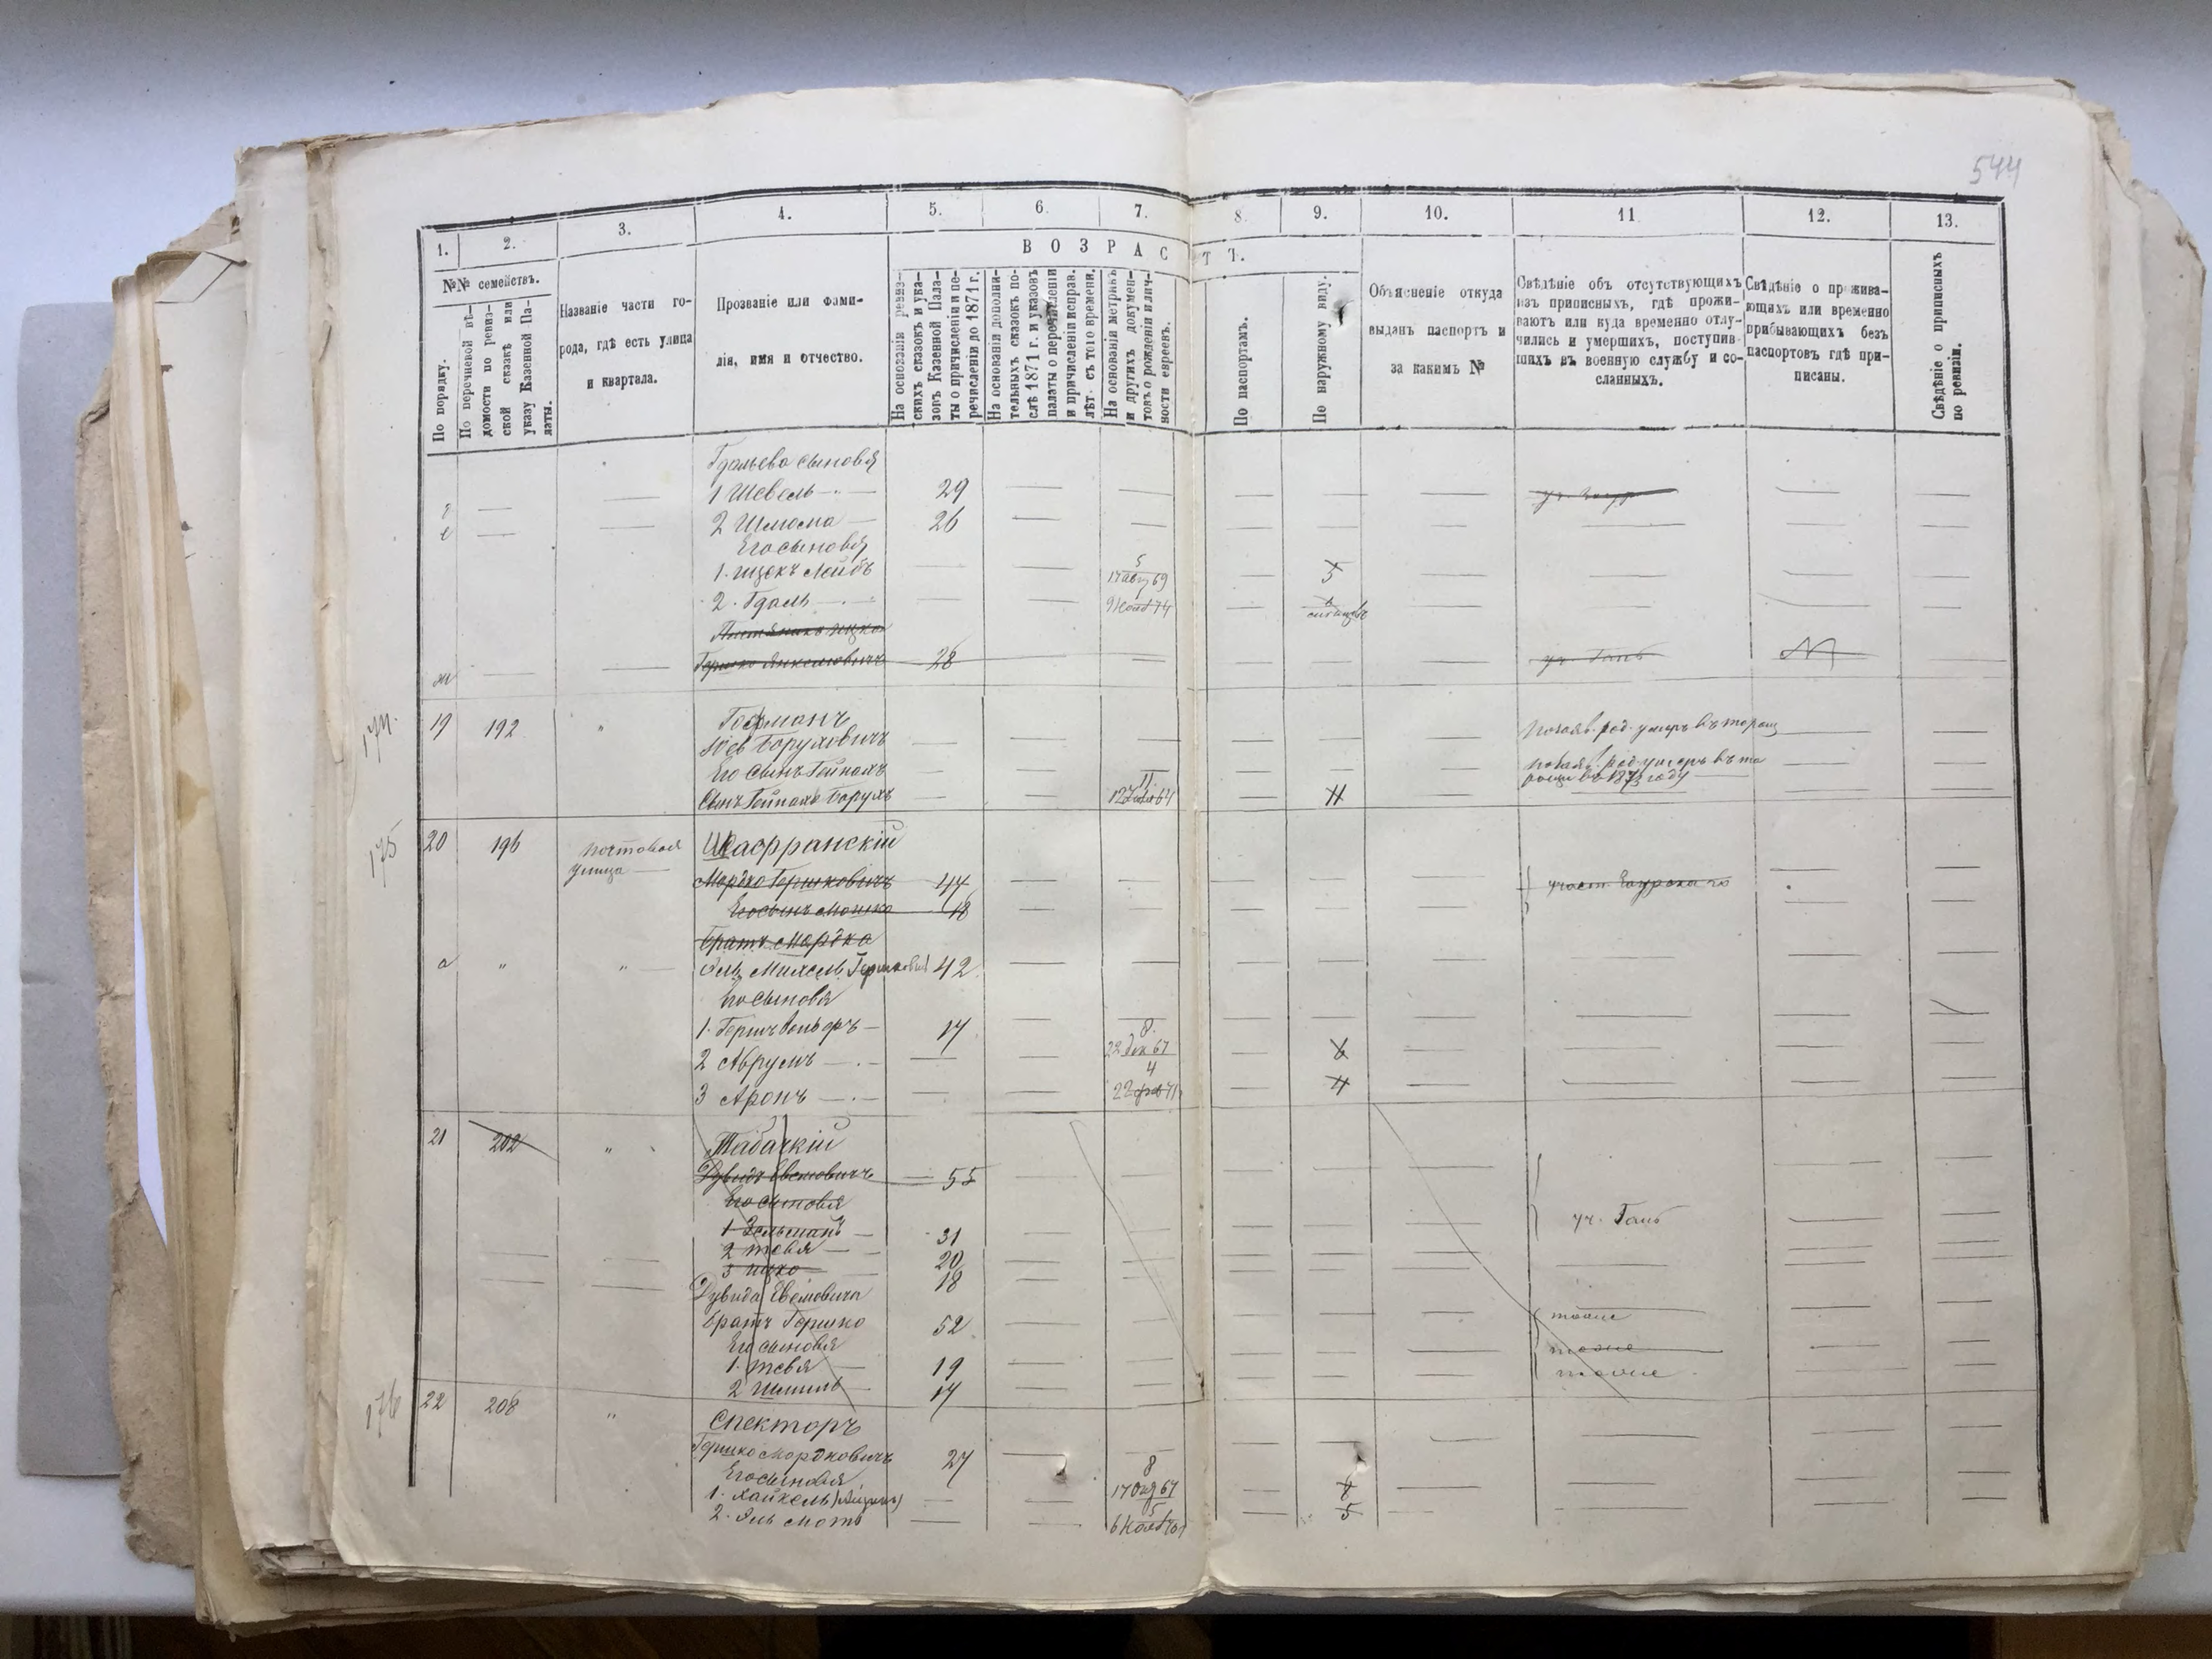 544
1. 2. 3. 4. 5. 6. 7. 8. 9. 10. 11. 12. 13.
№№ семействъ.
ВОЗРАСТЪ.
По порядку.
По перечневой вѣ-
домости по ревиз-
ской сказкѣ или
указу Казенной Па-
латы.
Названіе части го-
рода, гдѣ есть улица
и квартала.
Прозваніе или фами-
лія, имя и отчество.
На основаніи ревиз-
скихъ сказокъ и ука-
зовъ Казенной Пала-
ты о причисленіи и пе-
речисленіи до 1871 г.
На основаніи дополни-
тельныхъ сказокъ по-
слѣ 1871 г. и указовъ
палаты о перечисленіи
и причисленіи исправ.
лѣт. съ того времени.
На основаніи метрикъ
и другихъ докумен-
товъ о рожденіи и лич-
ности евреевъ.
По паспортамъ.
По наружному виду.
Объясненіе откуда
выданъ паспортъ и
за какимъ №
Свѣдѣніе объ отсутствующихъ
изъ приписныхъ, гдѣ прожи-
ваютъ или куда временно отлу-
чились и умершихъ, поступив-
шихъ въ военную службу и со-
сланныхъ.
Свѣдѣніе о прожива-
ющихъ или временно
прибывающихъ безъ
паспортовъ гдѣ при-
писаны.
Свѣдѣніе о приписныхъ
по ревизіи.
Гдальева сыновья
1 Шевель 29
2 Шлиома 26
Его сыновья
1. Ицекъ Лейбъ 5 17 авг 69 5
2. Гдаль 9 Нояб 74
Ицко
ж Гершко Янкелювичъ 28 уч. Ганъ
174.
19 192 " Гофманъ
Іовъ Боруховичъ
Его сынъ Гейнахъ
въ 1873 году
Сынъ Гейнаха Борухъ 11 64 11
175
20 196 Почтовая Шафранскій
улица
Мордко Гершковичъ 44
Его сынъ Мошко 18
Братъ Мордка
а " " Эль Михель Гершковъ 42
Его сыновья
1. Гершъ Вольфъ 17
2 Аврумъ 8. 22 Дек 67
3 Аронъ 4 22 фев 71 4
21 202 " Табачкій
Дувидъ Евелювичъ 55
Его сыновья
1 Зельманъ 31 уч. Ганъ
2 Тевя 20
3 Ицко 18
Дувида Евелювича
Братъ Гершко 52 тоже
Его сыновья
1. Тевя 19 тоже
2 Шмиль 17 тоже
176
22 208 " Спекторъ
Гершко Мордковичъ 27
Его сыновья
1. Хайкель 8 17 67
2. Эль Мотъ 5 6 Нояб 70 5